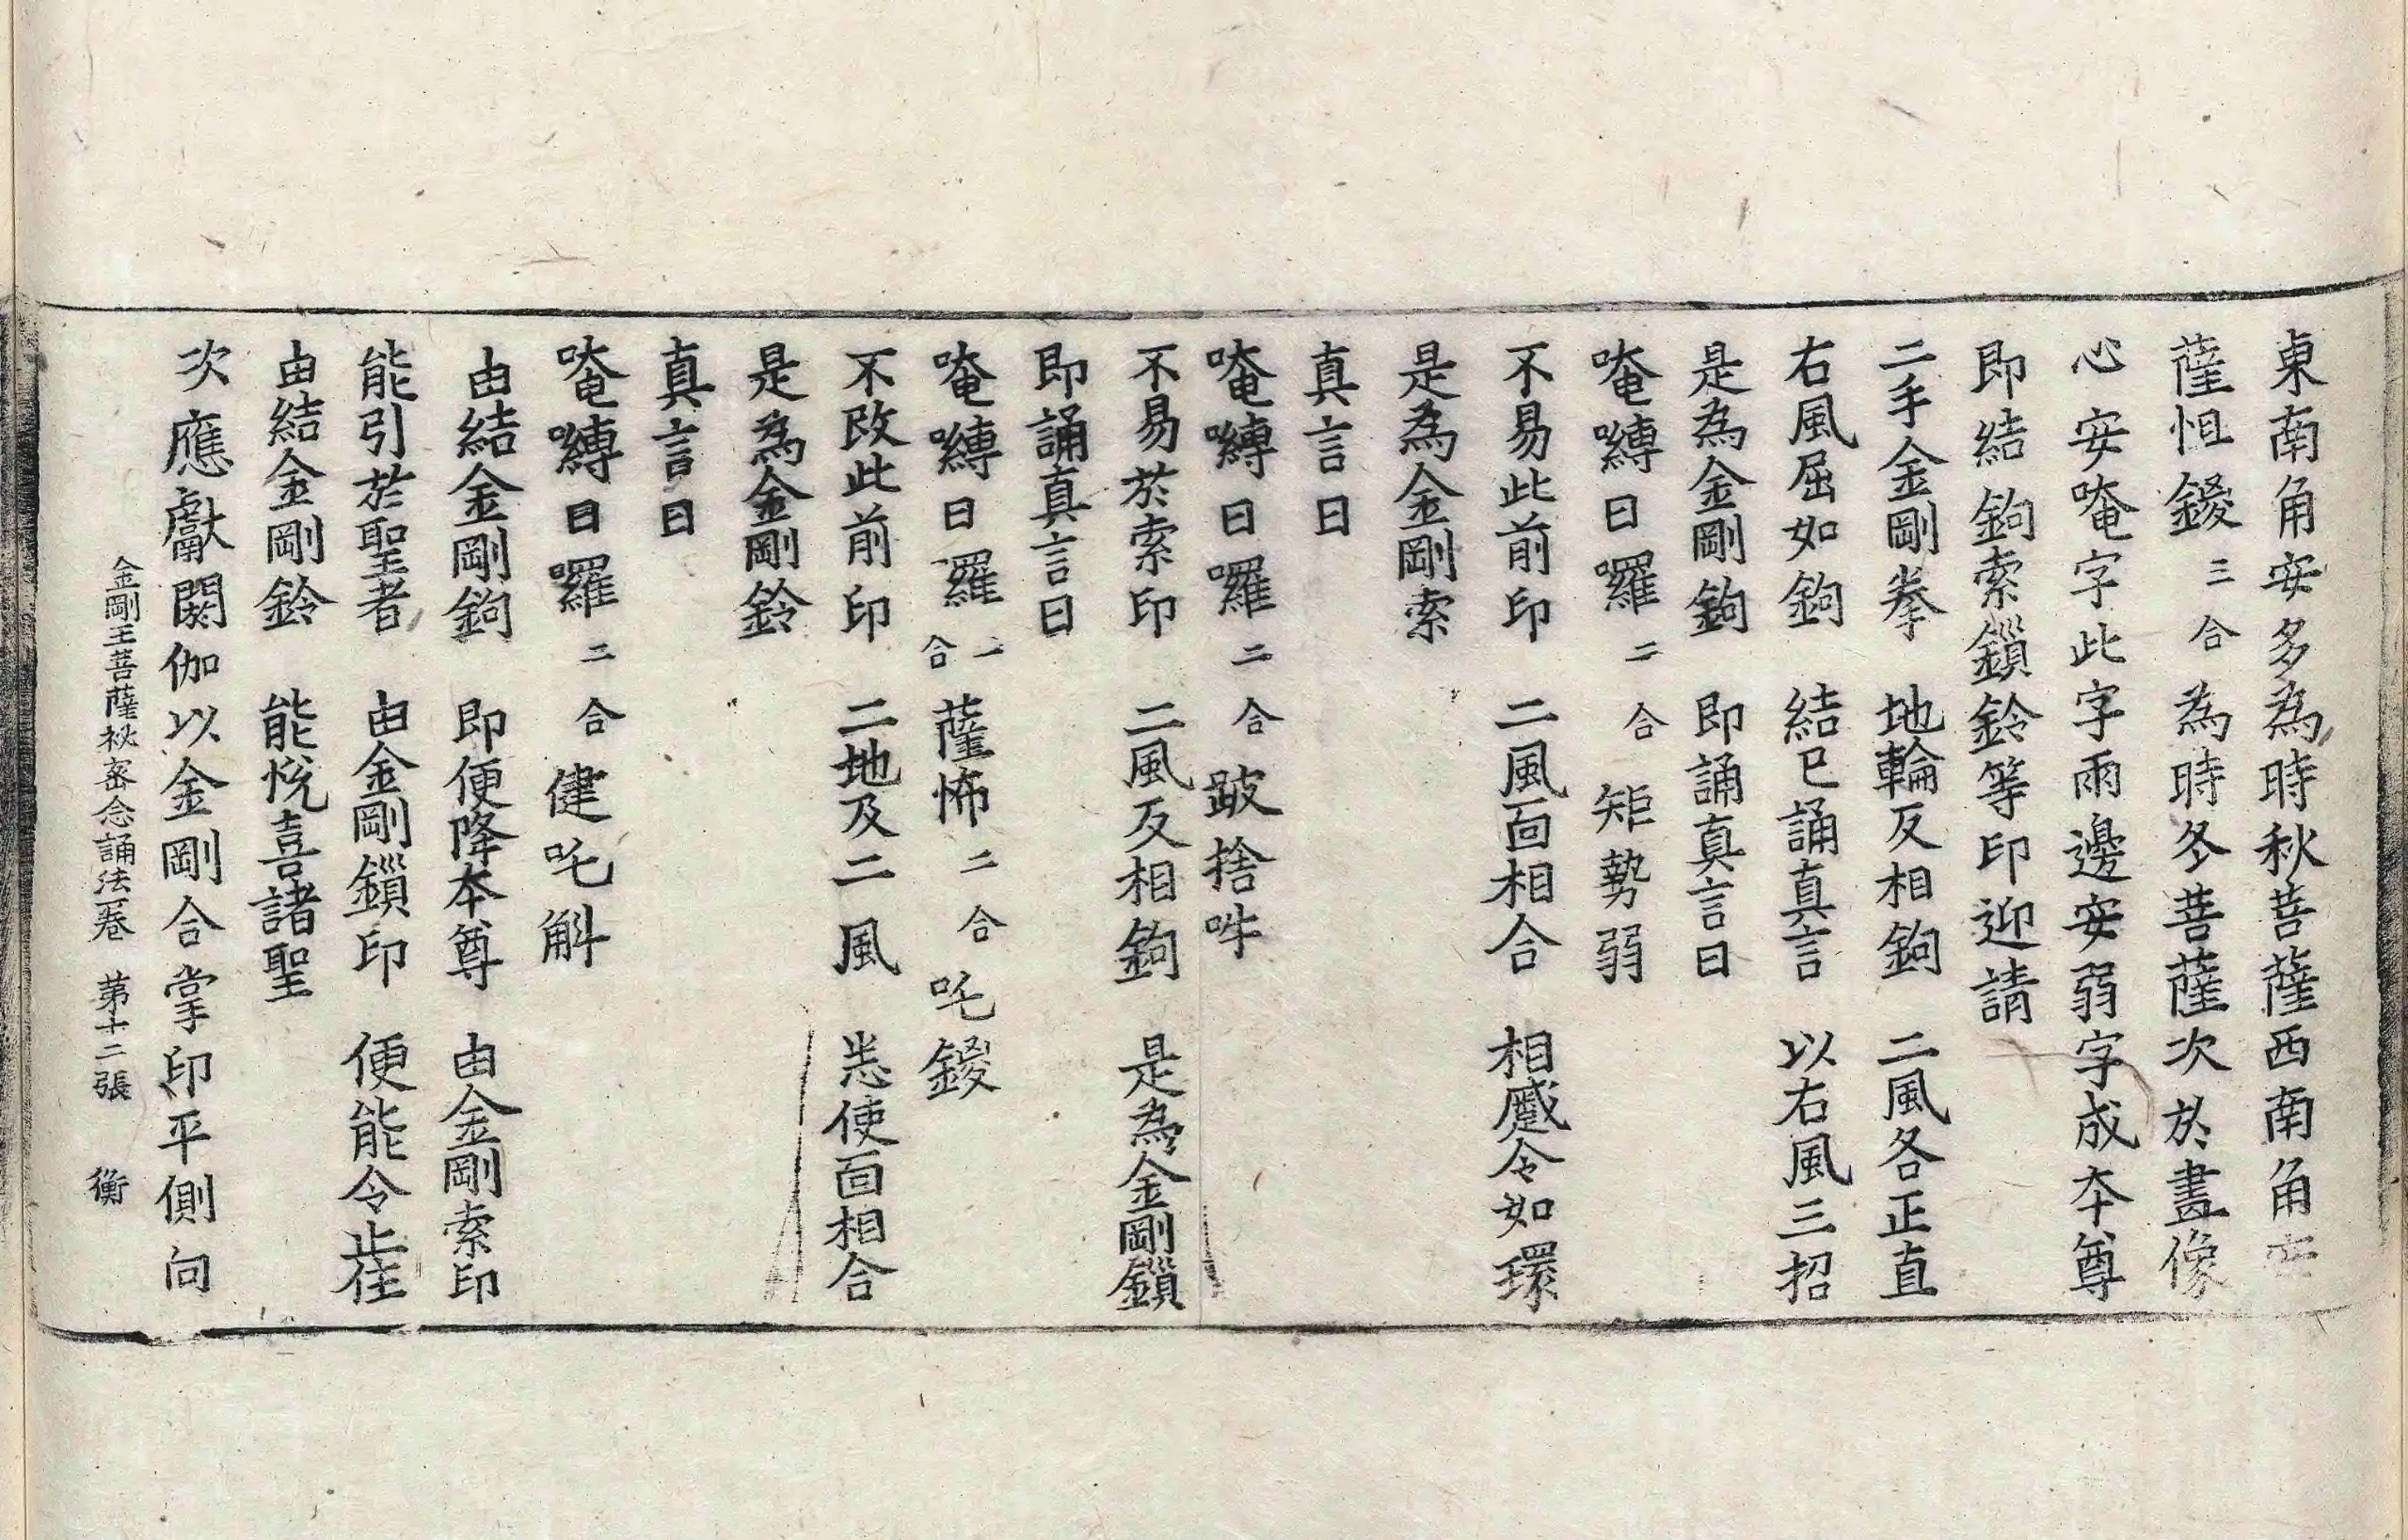 東南角安多為時秋菩薩西南角安
薩怛鑁三合為時冬菩薩次於畫像
心安唵字此字兩邊安弱字成夲尊
即結鉤索鏁鈴等印迎請
二手金剛拳　地輪反相鉤　二風各正直
右風屈如鉤　結已誦真言　以右風三招
是為金剛鉤　即誦真言曰
唵嚩日囉二合矩勢弱
不易此前印　二風面相合　相蹙令如環
是為金剛索
真言曰
唵嚩日囉二合跛捨吽
不易於索印　二風反相鉤　是為金剛鏁
即誦真言曰
唵嚩日囉二合薩怖二合吒鑁
不改此前印　二地及二風　悉使面相合
是為金剛鈴
真言曰
唵嚩日囉二合健吒斛
由結金剛鉤　即便降夲尊　由金剛索印
能引於聖者　由金剛鏁印　便能令止住
由結金剛鈴　能悅喜諸聖
次應獻閼伽以金剛合掌印平側向
金剛王菩薩秘密念誦法一卷　第十二張　衡